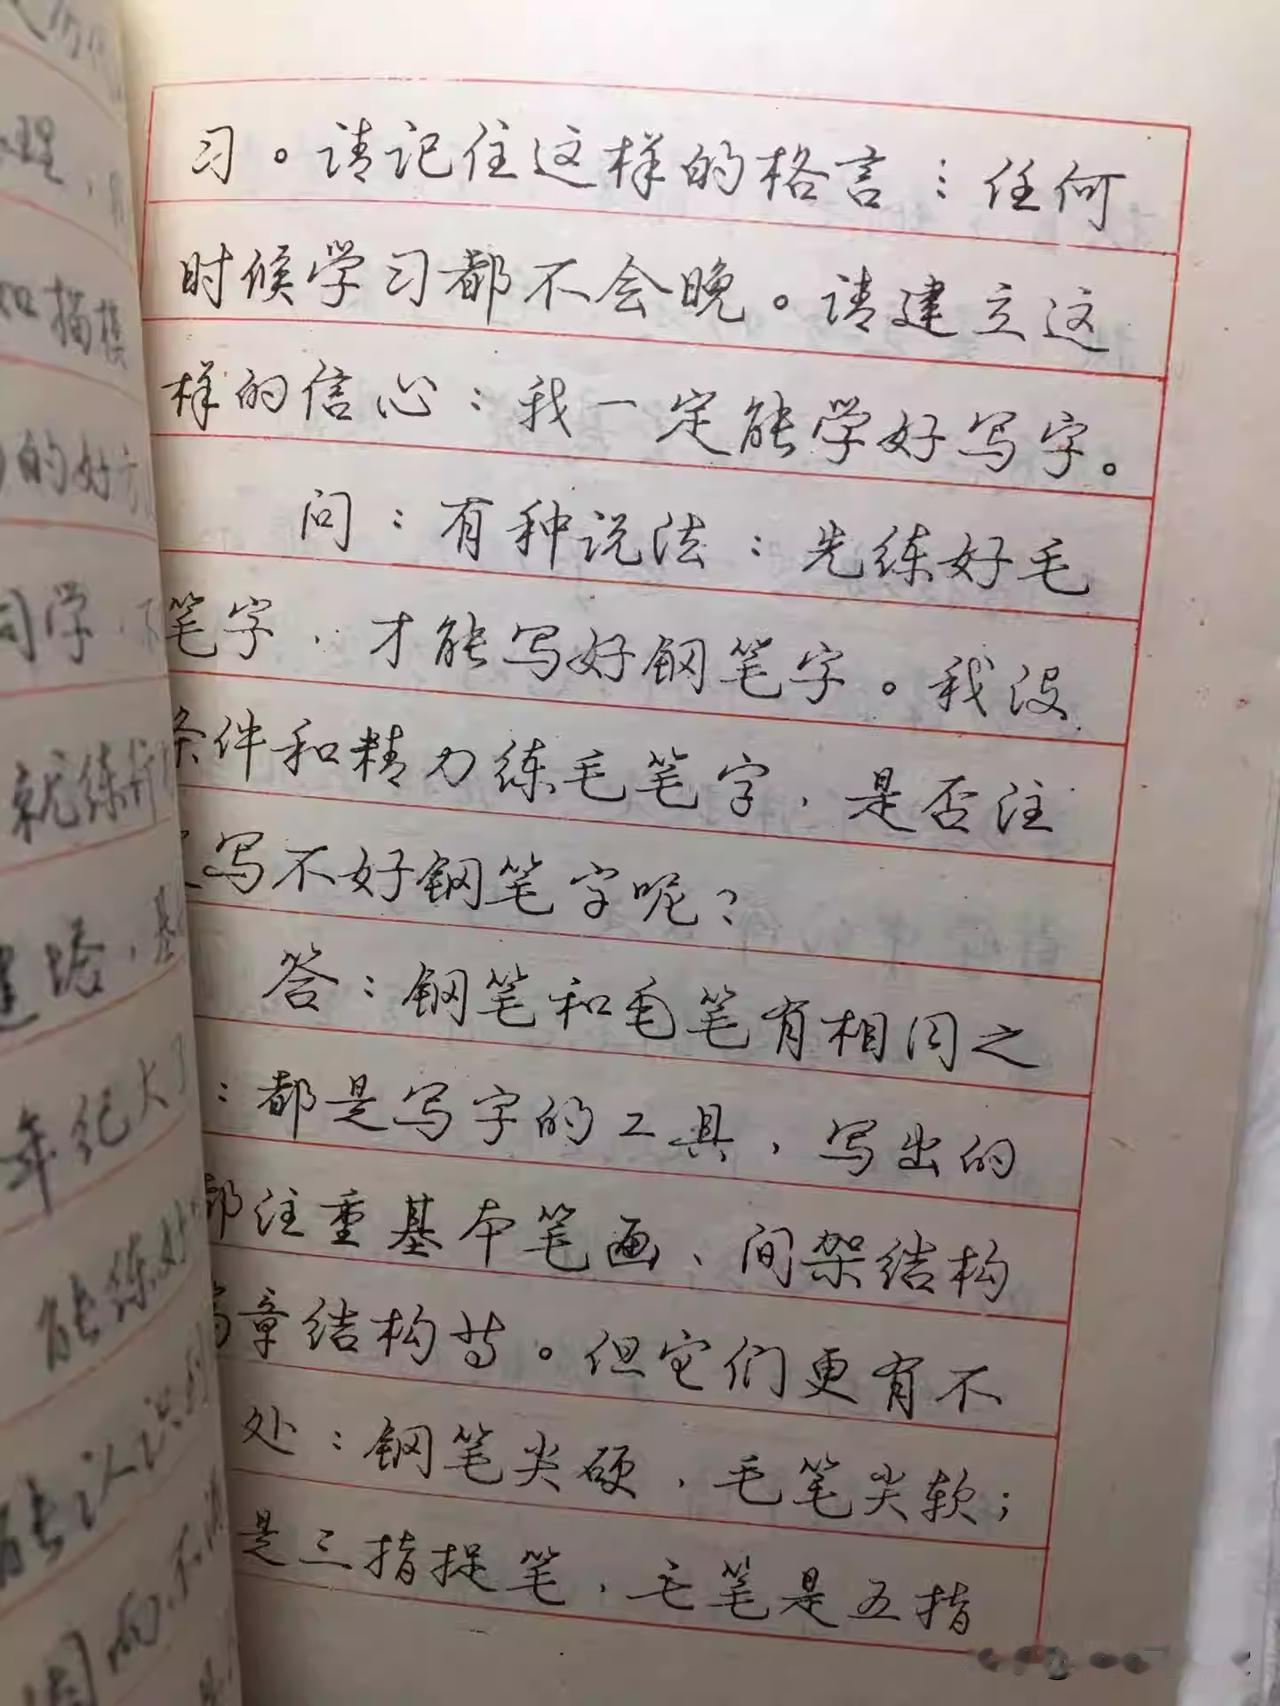 习。请记住这样的格言：任何
时候学习都不会晚。请建立这
样的信心：我一定能学好写字。
问：有种说法：先练好毛
笔字，才能写好钢笔字。我没
条件和精力练毛笔字，是否注
写不好钢笔字呢？
答：钢笔和毛笔有相同之
：都是写字的工具，写出的
都注重基本笔画、间架结构
章结构等。但它们更有不
处：钢笔尖硬，毛笔尖软；
是三指捉笔，毛笔是五指
理，
和描模
的好方
同学，不
就练
建塔，基
年纪大了
能练好
能认识到